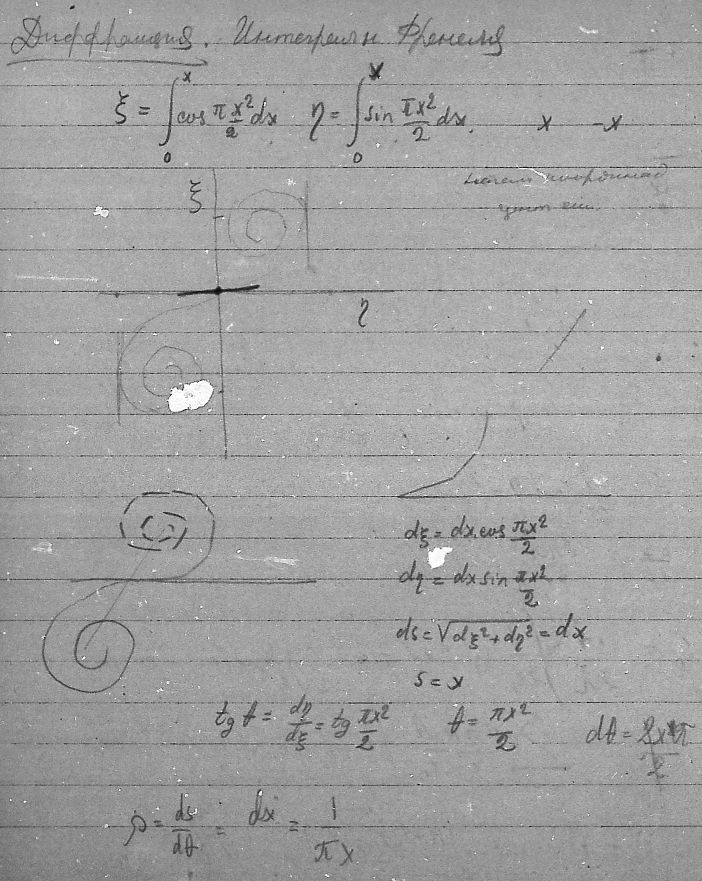 Дифракция. Интегралы Френеля
ξ = ∫₀ˣ cos πx²/2 dx η = ∫₀ˣ sin πx²/2 dx. x -x
ξ
η
dξ = dx cos πx²/2
dη = dx sin πx²/2
ds = √(dξ² + dη²) = dx
s = x
tg θ = dη/dξ = tg πx²/2 θ = πx²/2 dθ = 2xπ/2
ρ = ds/dθ = dx = 1/πx